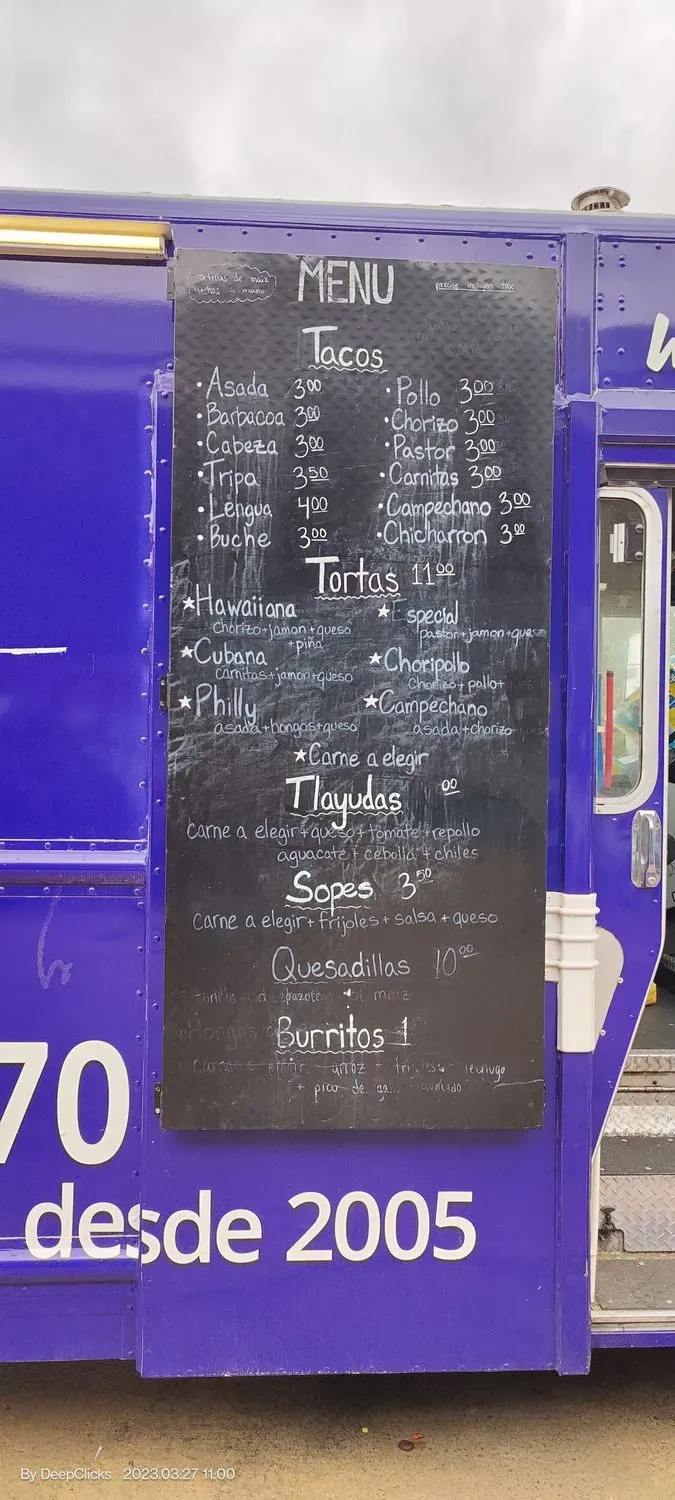 tortillas de maiz
hechas a mano
MENU
precios incluyen tax
Tacos
• Asada 3.00
• Barbacoa 3.00
• Cabeza 3.00
• Tripa 3.50
• Lengua 4.00
• Buche 3.00
• Pollo 3.00
• Chorizo 3.00
• Pastor 3.00
• Carnitas 3.00
• Campechano 3.00
• Chicharron 3.00
Tortas 11.00
★ Hawaiiana
chorizo+jamon+queso
+piña
★ Cubana
carnitas+jamon+queso
★ Philly
asada+hongos+queso
★ Especial
pastor+jamon+queso
★ Choripollo
chorizo+pollo+
★ Campechano
asada+chorizo
★ Carne a elegir
Tlayudas 00
carne a elegir+queso+tomate+repollo
aguacate+cebolla+chiles
Sopes 3.50
carne a elegir+frijoles+salsa+queso
Quesadillas 10.00
epazote maiz
Hongos
Burritos 1
elegir arroz +
+ pico de
70
desde 2005
By DeepClicks 2023.03.27 11:00